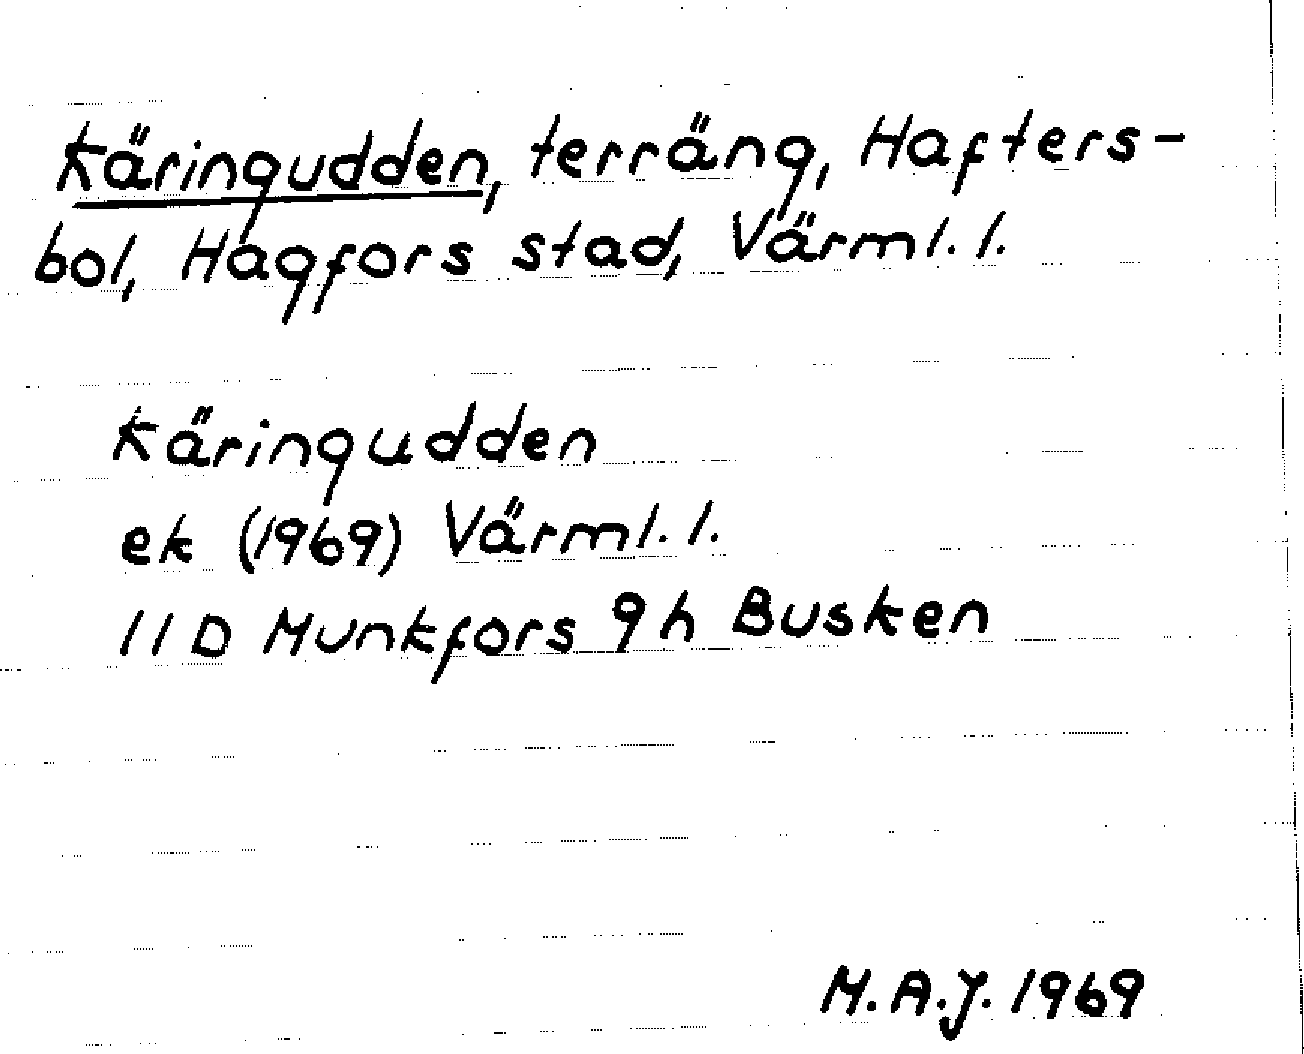 Käringudden, terräng, Hafters-
bol, Hagfors stad, Värml. l.
Käringudden
ek (1969) Värml. l.
11D Munkfors 9h Busken
M.A.J. 1969